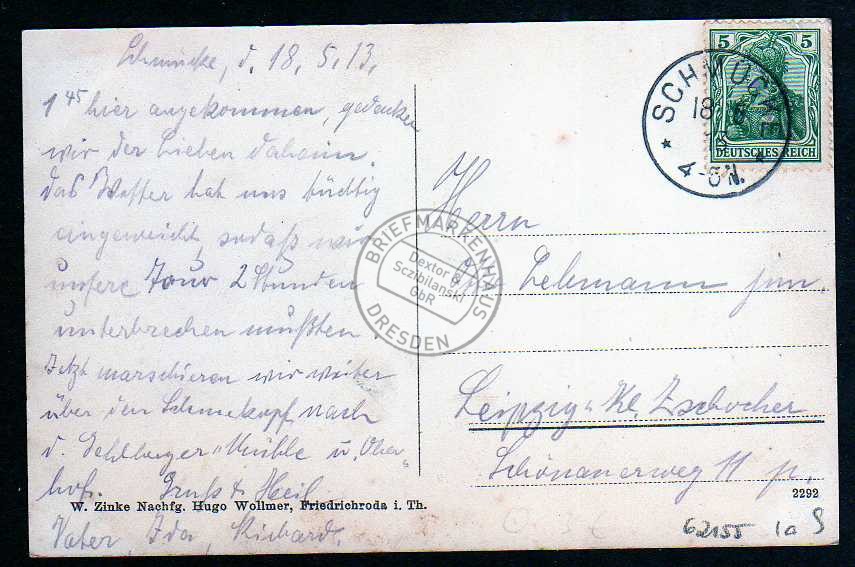 Schmücke, d. 18. 5. 13.
1 45 hier angekommen, gedenken
wir der Lieben daheim.
Das Wetter hat uns tüchtig
eingeweicht, sodaß wir
unsere Tour 2 Stunden
unterbrechen mußten.
Jetzt marschieren wir weiter
über den Schneekopf nach
d. Gehlberger-Mühle u. Ober-
hof. Gruß & Heil
W. Zinke Nachfg. Hugo Wollmer, Friedrichroda i. Th.
Vater, Ida, Richard.
5 5
DEUTSCHES REICH
SCHMÜCKE
18
4-5 N.
Herrn
Lehmann jun.
Leipzig-Kl. Zschocher
Schönauerweg 11 p.
2292
62155 1a S
BRIEFMARKENHAUS
Dextor &
Sczibilanski
GbR
DRESDEN